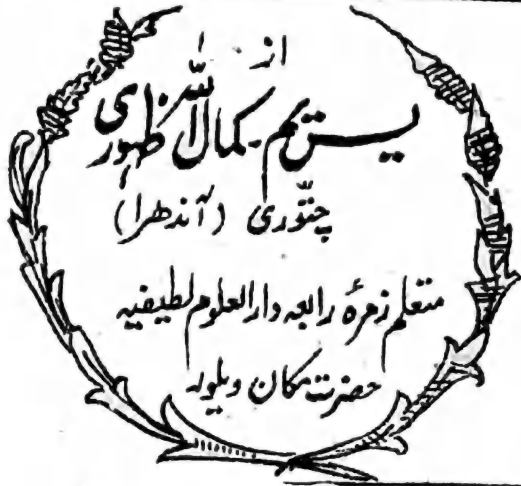 از
یس یم کمال اللہ ظہوری
چتّوری (آندھرا)
متعلم زمرۂ رابعہ دارالعلوم لطیفیہ
حضرت مکان ویلور